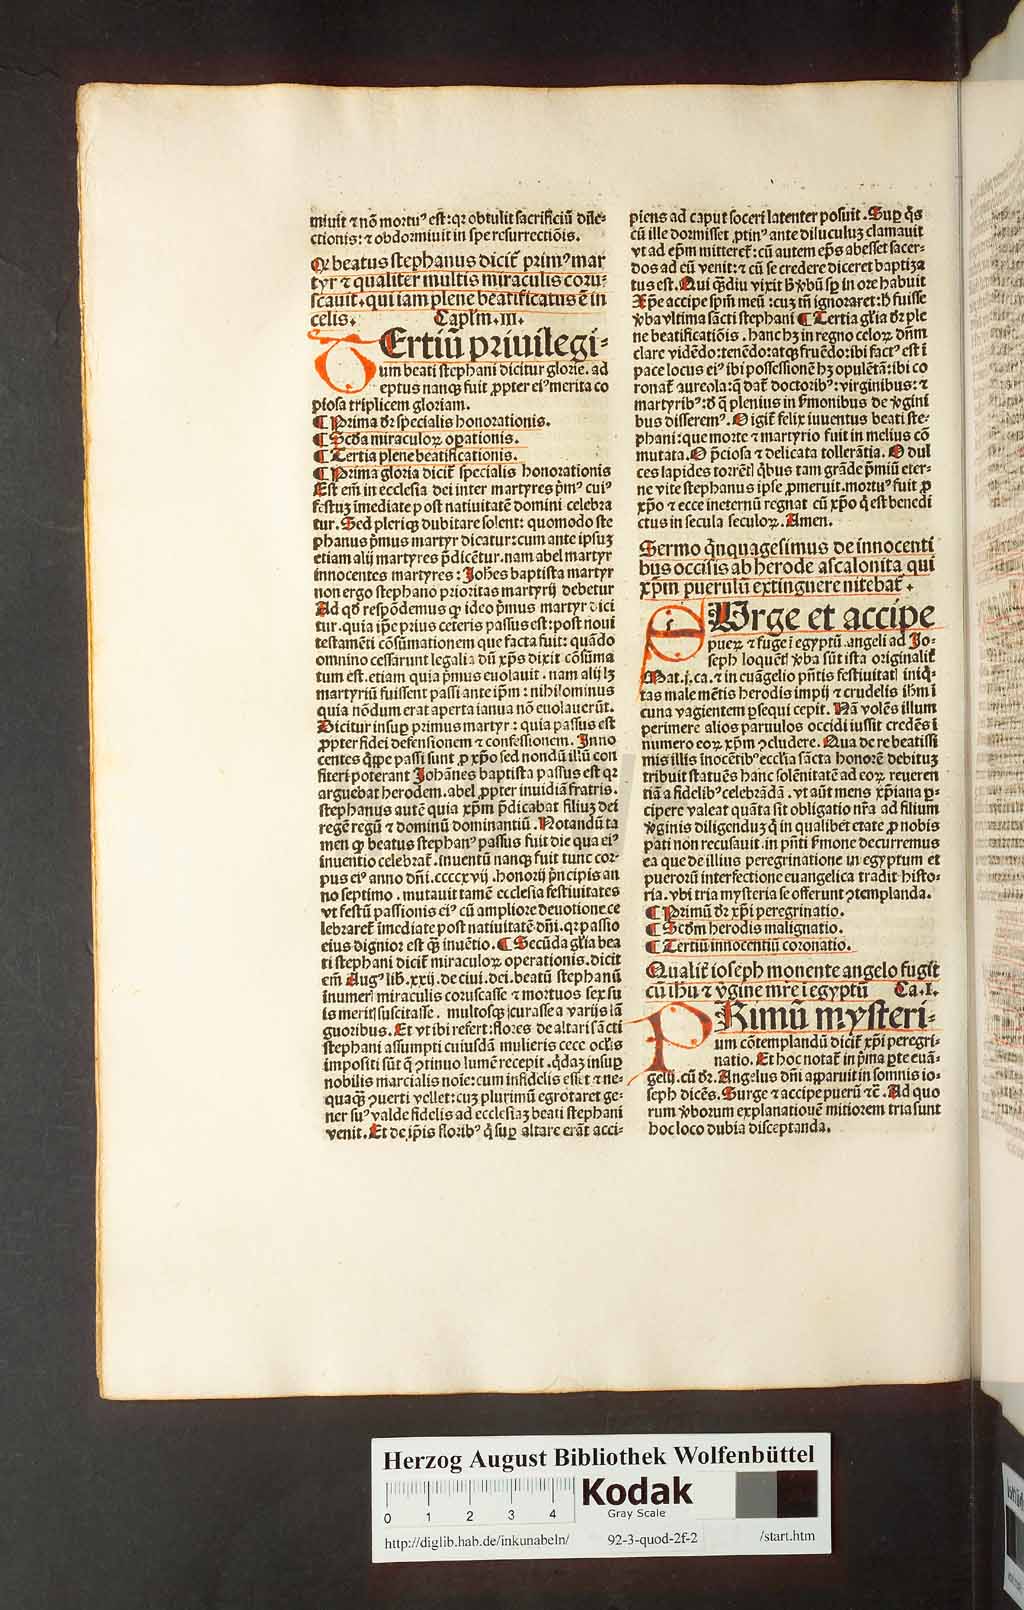 miuit ⁊ nõ mortuꝰ est: qꝛ obtulit sacrificiũ dile-
ctionis: ⁊ obdormiuit in spe resurrectiõis.
Qꝛ beatus stephanus dicit᷑ prim9 mar
tyr ⁊ qualiter multis miraculis coru-
scauit. qui iam plene beatificatus ẽ in
celis. Capl'm. iii.
TErtiũ priuilegi-
um beati stephani dicitur glorie. ad
eptus nanqꝫ fuit ꝓpter eiꝰ merita co
piosa triplicem gloriam.
¶ Prima dr̃ specialis honorationis.
¶ Scda miraculoꝝ oꝑationis.
¶ Tertia plene beatificationis.
¶ Prima gloria dicit᷑ specialis honorationis
Est em̃ in ecclesia dei inter martyres p̃mꝰ cuiꝰ
festuꝫ ĩmediate post natiuitatẽ domini celebra
tur. Sed pleriqꝫ dubitare solent: quomodo ste
phanus p̃mus martyr dicatur: cum ante ipsuꝫ
etiam alij martyres p̃dicẽtur. nam abel martyr
innocentes martyres: Johẽs baptista martyr
non ergo stephano prioritas martyrij debetur
Ad qd̃ respõdemus ꝙ ideo p̃mus martyr dici
tur. quia ip̃e prius ceteris passus est: post noui
testamẽti cõsũmationem que facta fuit: quãdo
omnino cessarunt legalia dũ xp̃s dixit cõsũma
tum est. etiam quia p̃mus euolauit. nam alij lꝫ
martyriũ fuissent passi ante ip̃m: nihilominus
quia nõdum erat aperta ianua nõ euolauerũt.
Dicitur insuꝑ primus martyr: quia passus est
ꝓpter fidei defensionem ⁊ confessionem. Inno
centes q̃ppe passi sunt ꝓ xp̃o sed nondũ illũ con
fiteri poterant Johãnes baptista passus est qꝛ
arguebat herodem. abel ꝓpter inuidiã fratris.
stephanus autẽ quia xp̃m p̃dicabat filiuꝫ dei
regẽ regũ ⁊ dominũ dominantiũ. Notandũ ta
men ꝙ beatus stephanꝰ passus fuit die qua eiꝰ
inuentio celebrat᷑. inuentũ nanqꝫ fuit tunc cor
pus eiꝰ anno dñi. ccccxvij. honorij p̃ncipis an
no septimo. mutauit tamẽ ecclesia festiuitates
vt festũ passionis eiꝰ cũ ampliore deuotione ce
lebraret᷑ ĩmediate post natiuitatẽ dñi. qꝛ passio
eius dignior est q̃ꝫ inuẽtio. ¶ Secũda gl'ia bea
ti stephani dicit᷑ miraculoꝝ operationis. dicit
em̃ Augꝰ lib. xxij. de ciui. dei. beatũ stephanũ
inumeris miraculis coruscasse ⁊ mortuos sex su
is meritis suscitasse. multosqꝫ curasse a varijs lã
guoribus. Et vt ibi refert: flores de altari sãcti
stephani assumpti cuiusdã mulieris cece ocl'is
impositi sũt q̃ ꝯtinuo lumẽ recepit. q̃daꝫ insuꝑ
nobilis marcialis noĩe: cum infidelis esset ⁊ ne-
quaqꝫ ꝯuerti vellet: cuꝫ plurimũ egrotaret ge-
ner suꝰ valde fidelis ad ecclesiaꝫ beati stephani
venit. Et de ip̃is floribꝰ q̃ suꝑ altare erãt acci-
piens ad caput soceri latenter posuit. Suꝑ q̃s
cũ ille dormisset ꝓtinꝰ ante diluculuꝫ clamauit
vt ad ep̃m mitteret᷑: cũ autem ep̃s abesset sacer-
dos ad eũ venit: ⁊ cũ se credere diceret baptiza
tus est. Qui q̃diu vixit hͦ v̾bũ sp̃ in ore habuit
Xp̃e accipe sp̃m meũ: cuꝫ tñ ignoraret: hͦ fuisse
v̾ba vltima sãcti stephani ¶ Tertia gl'ia dr̃ ple
ne beatificatiõis. hanc hꝫ in regno celoꝝ dñm
clare vidẽdo: tenẽdo: atqꝫ fruẽdo: ibi factꝰ est ĩ
pace locus eiꝰ ibi possessionẽ hꝫ opulẽtã: ibi co
ronat᷑ aureola: q̃ dat᷑ doctoribꝰ: virginibus: ⁊
martyribꝰ: ð q̃ plenius in s̾monibus de v̾gini
bus disseremꝰ. O igit᷑ felix iuuentus beati ste-
phani: que morte ⁊ martyrio fuit in melius cõ
mutata. O p̃ciosa ⁊ delicata tollerãtia. O dul
ces lapides torrẽtis q̃bus tam grãde p̃miũ eter-
ne vite stephanus ipse ꝓmeruit. mortuꝰ fuit ꝓ
xp̃o ⁊ ecce ineternũ regnat cũ xp̃o q̃ est benedi
ctus in secula seculoꝝ. Amen.
Sermo q̃nquagesimus de innocenti
bus occisis ab herode ascalonita qui
xp̃m puerulũ extinguere nitebat᷑.
SUrge et accipe
pueꝝ ⁊ fuge ĩ egyptũ. angeli ad Jo-
seph loquẽtis v̾ba sũt ista originalit᷑
Mat. j. ca. ⁊ in euãgelio p̃ntis festiuitatis iniq̃-
tas male mẽtis herodis impij ⁊ crudelis ihm̃ ĩ
cuna vagientem ꝑsequi cepit. Nã volẽs illum
perimere alios paruulos occidi iussit credẽs ĩ
numero eoꝝ xp̃m ꝯcludere. Qua de re beatissi
mis illis inocẽtibꝰ eccl'ia sãcta honorẽ debituꝫ
tribuit statuẽs hanc solẽnitatẽ ad eoꝝ reueren
tiã a fidelibꝰ celebrãdã. vt aũt mens xp̃iana ꝑ-
cipere valeat quãta sit obligatio nr̃a ad filium
v̾ginis diligenduꝫ q̃ in qualibet etate ꝓ nobis
pati non recusauit. in p̃nti s̾mone decurremus
ea que de illius peregrinatione in egyptum et
puerorũ interfectione euangelica tradit histo-
ria. vbi tria mysteria se offerunt ꝯtemplanda.
¶ Primũ dr̃ xp̃i peregrinatio.
¶ Scdm herodis malignatio.
¶ Tertiũ innocentiũ coronatio.
Qualit᷑ ioseph monente angelo fugit
cũ ihũ ⁊ v̾gine mr̃e ĩ egyptũ Ca. I.
PRimũ mysteri-
um cõtemplandũ dicit᷑ xp̃i peregri-
natio. Et hoc notat᷑ in p̃ma ꝑte euã-
gelij. cũ dr̃. Angelus dñi apparuit in somnis io-
seph dicẽs. Surge ⁊ accipe puerũ ⁊c̃. Ad quo
rum v̾borum explanationẽ mitiorem tria sunt
hoc loco dubia disceptanda.
Herzog August Bibliothek Wolfenbüttel
0 1 2 3 4
Kodak
Gray Scale
http://diglib.hab.de/inkunabeln/ 92-3-quod-2f-2 /start.htm